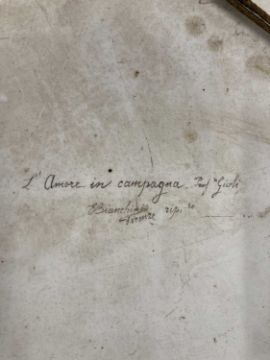 L'Amore in campagna. Prof. Gioli
Bianchini rip.
Firenze